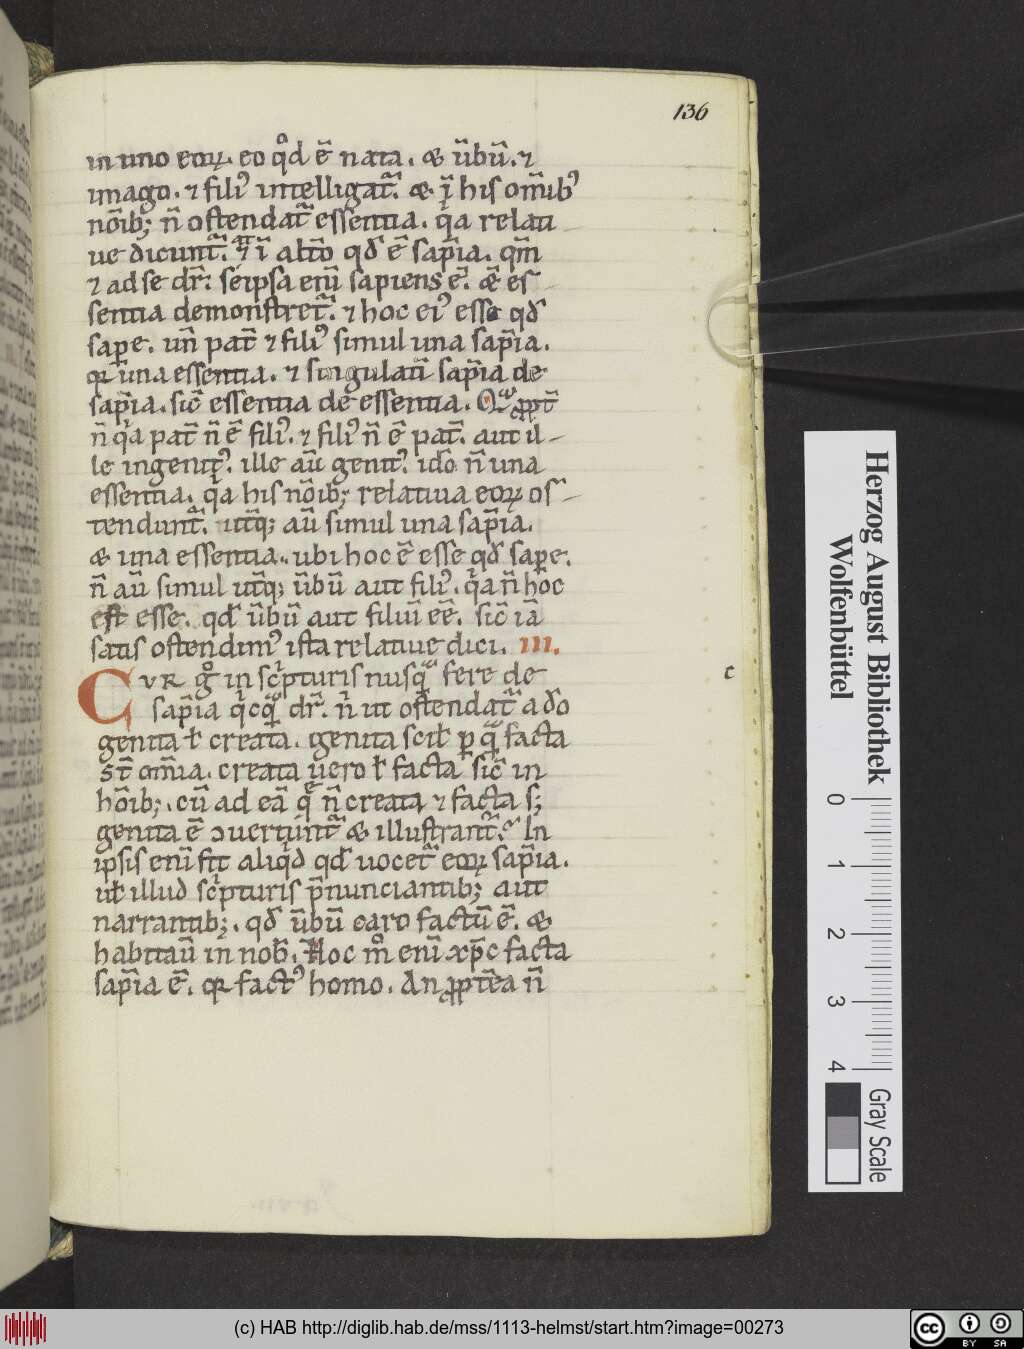 136
in uno eoꝝ. eo qͦd ē nata. & ūbū. ⁊
imago. ⁊ filiꝰ intelligat᷑. & ī his om̄ibꝰ
nōib; n̄ ostendat᷑ essentia. qͥa relati
ue dicunt᷑. ⁊ ī alt̄o qd̄ ē sap̄ia. qm̄
⁊ ad se dr̄. seipsa enī sapiens ē. & es
sentia demonstret᷑. ⁊ hoc eiꝰ esse qd̄
saꝑe. un̄ pat̄ ⁊ filiꝰ simul una sap̄ia.
una essentia. ⁊ singulatī sap̄ia de
sap̄ia. sic̄ essentia de essentia.
n̄ qͥa pat̄ n̄ ē filiꝰ. ⁊ filiꝰ n̄ ē pat̄. aut il-
le ingenitꝰ. ille aū genitꝰ. idō n̄ una
essentia. qͥa his nōib; relatiua eoꝝ os-
tendunt᷑. utq̄; aū simul una sap̄ia.
& una essentia. ubi hoc ē esse qd̄ saꝑe.
n̄ aū simul utq̄; ūbū aut filiꝰ. qͥa n̄ hoc
est esse. qd̄ ūbū aut filiū eē. sic̄ iā
satis ostendimꝰ ista relatiue dici. III.
CVR gͦ in sc̄pturis nusqͣ fere de
sap̄ia qͥcqͣ dr̄. nͥ ut ostendat᷑ a dō
genita ł creata. genita scił ꝑ qͣ facta
st̄ om̄ia. creata uero ł facta sic̄ in
hōib;. cū ad eā q̄ n̄ creata ⁊ facta s;
genita ē ꝯuertunt᷑ & illustrant᷑. In
ipsis enī fit aliqͥd qd̄ uocet᷑ eoꝝ sap̄ia.
uł illud sc̄pturis p̄nunciantib; aut
narrantib;. qd̄ ūbū caro factū ē. &
habitaū in nob̄. Hoc mͦ enī xp̄c facta
sap̄ia ē. factꝰ homo. An ꝓpt̄ea n̄
c
Herzog August Bibliothek
Wolfenbüttel
0 1 2 3 4
Gray Scale
(c) HAB http://diglib.hab.de/mss/1113-helmst/start.htm?image=00273
cc BY SA